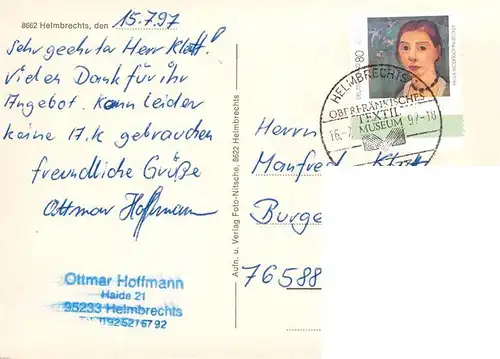 8662 Helmbrechts, den 15.7.97
Sehr geehrter Herr Klatt!
vielen Dank für ihr
Angebot. Kann leider
keine A.K gebrauchen
freundliche Grüße
Ottmar Hoffmann
Ottmar Hoffmann
Haide 21
95233 Helmbrechts
Aufn. u. Verlag Foto-Nitsche, 8622 Helmbrechts
80
PAULA MODERSOHN-BECKER
HELMBRECHTS
OBERFRÄNKISCHES
TEXTIL-
MUSEUM
97-10
Herrn
Manfred
76588